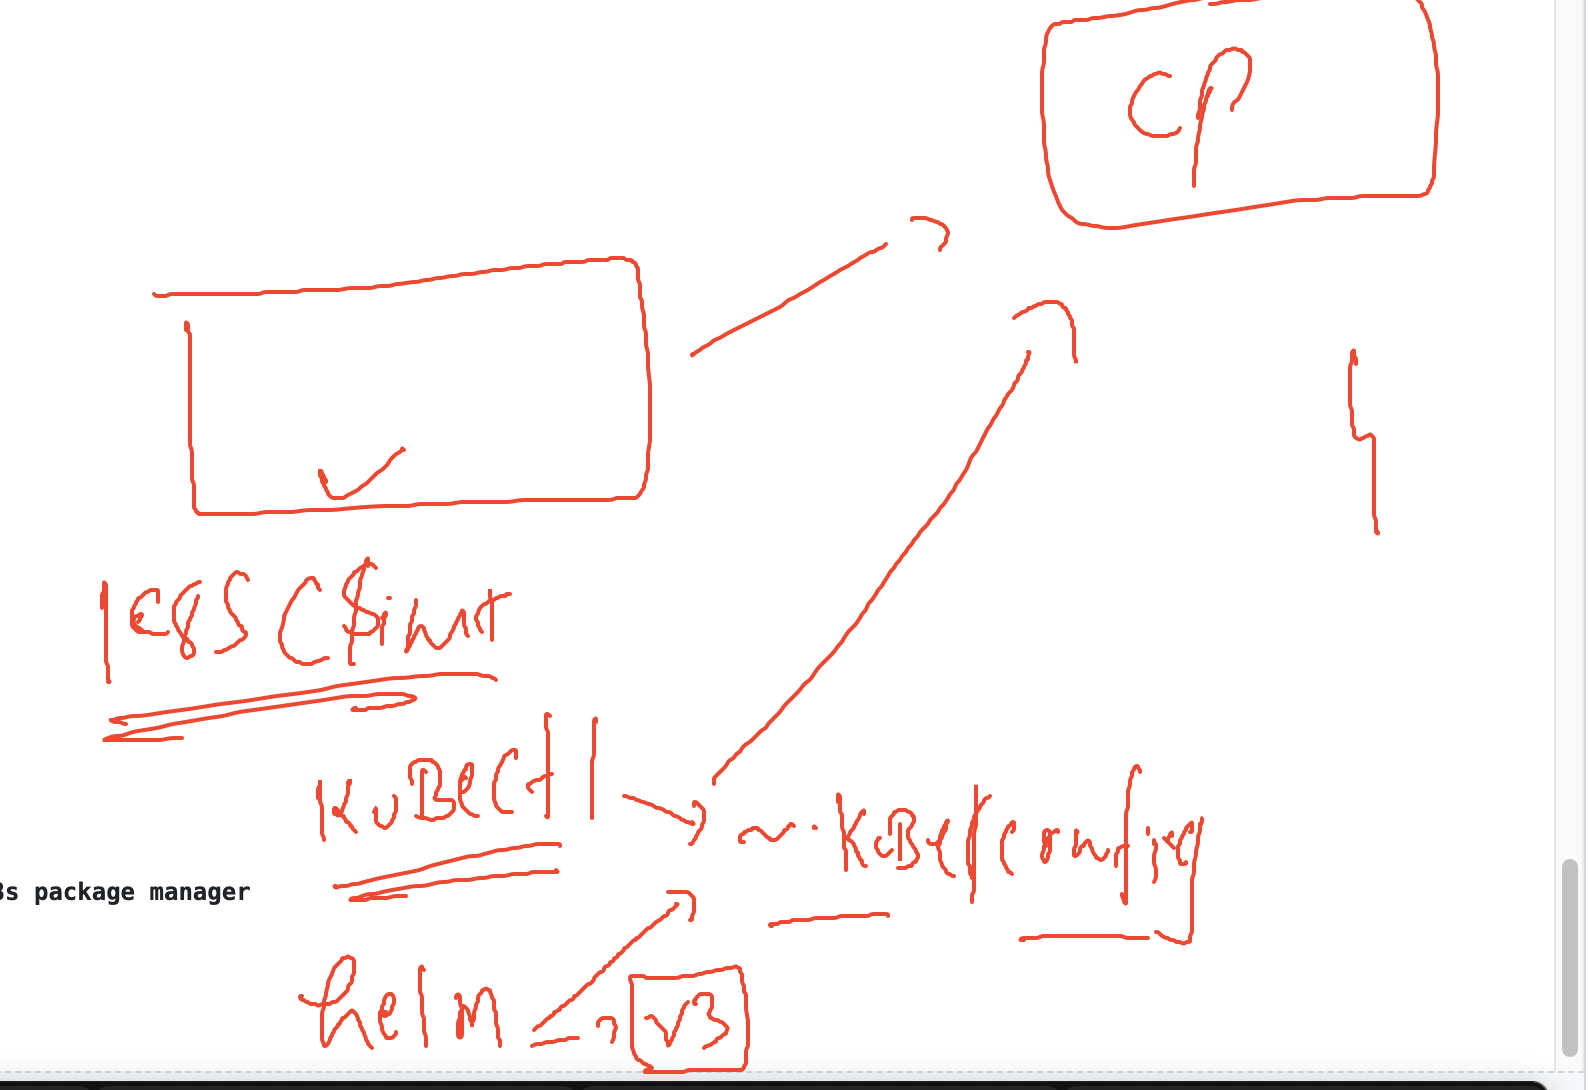 CP
K8S Client
KuBeCtl
~.KuBe/config
3s package manager
helm
v3